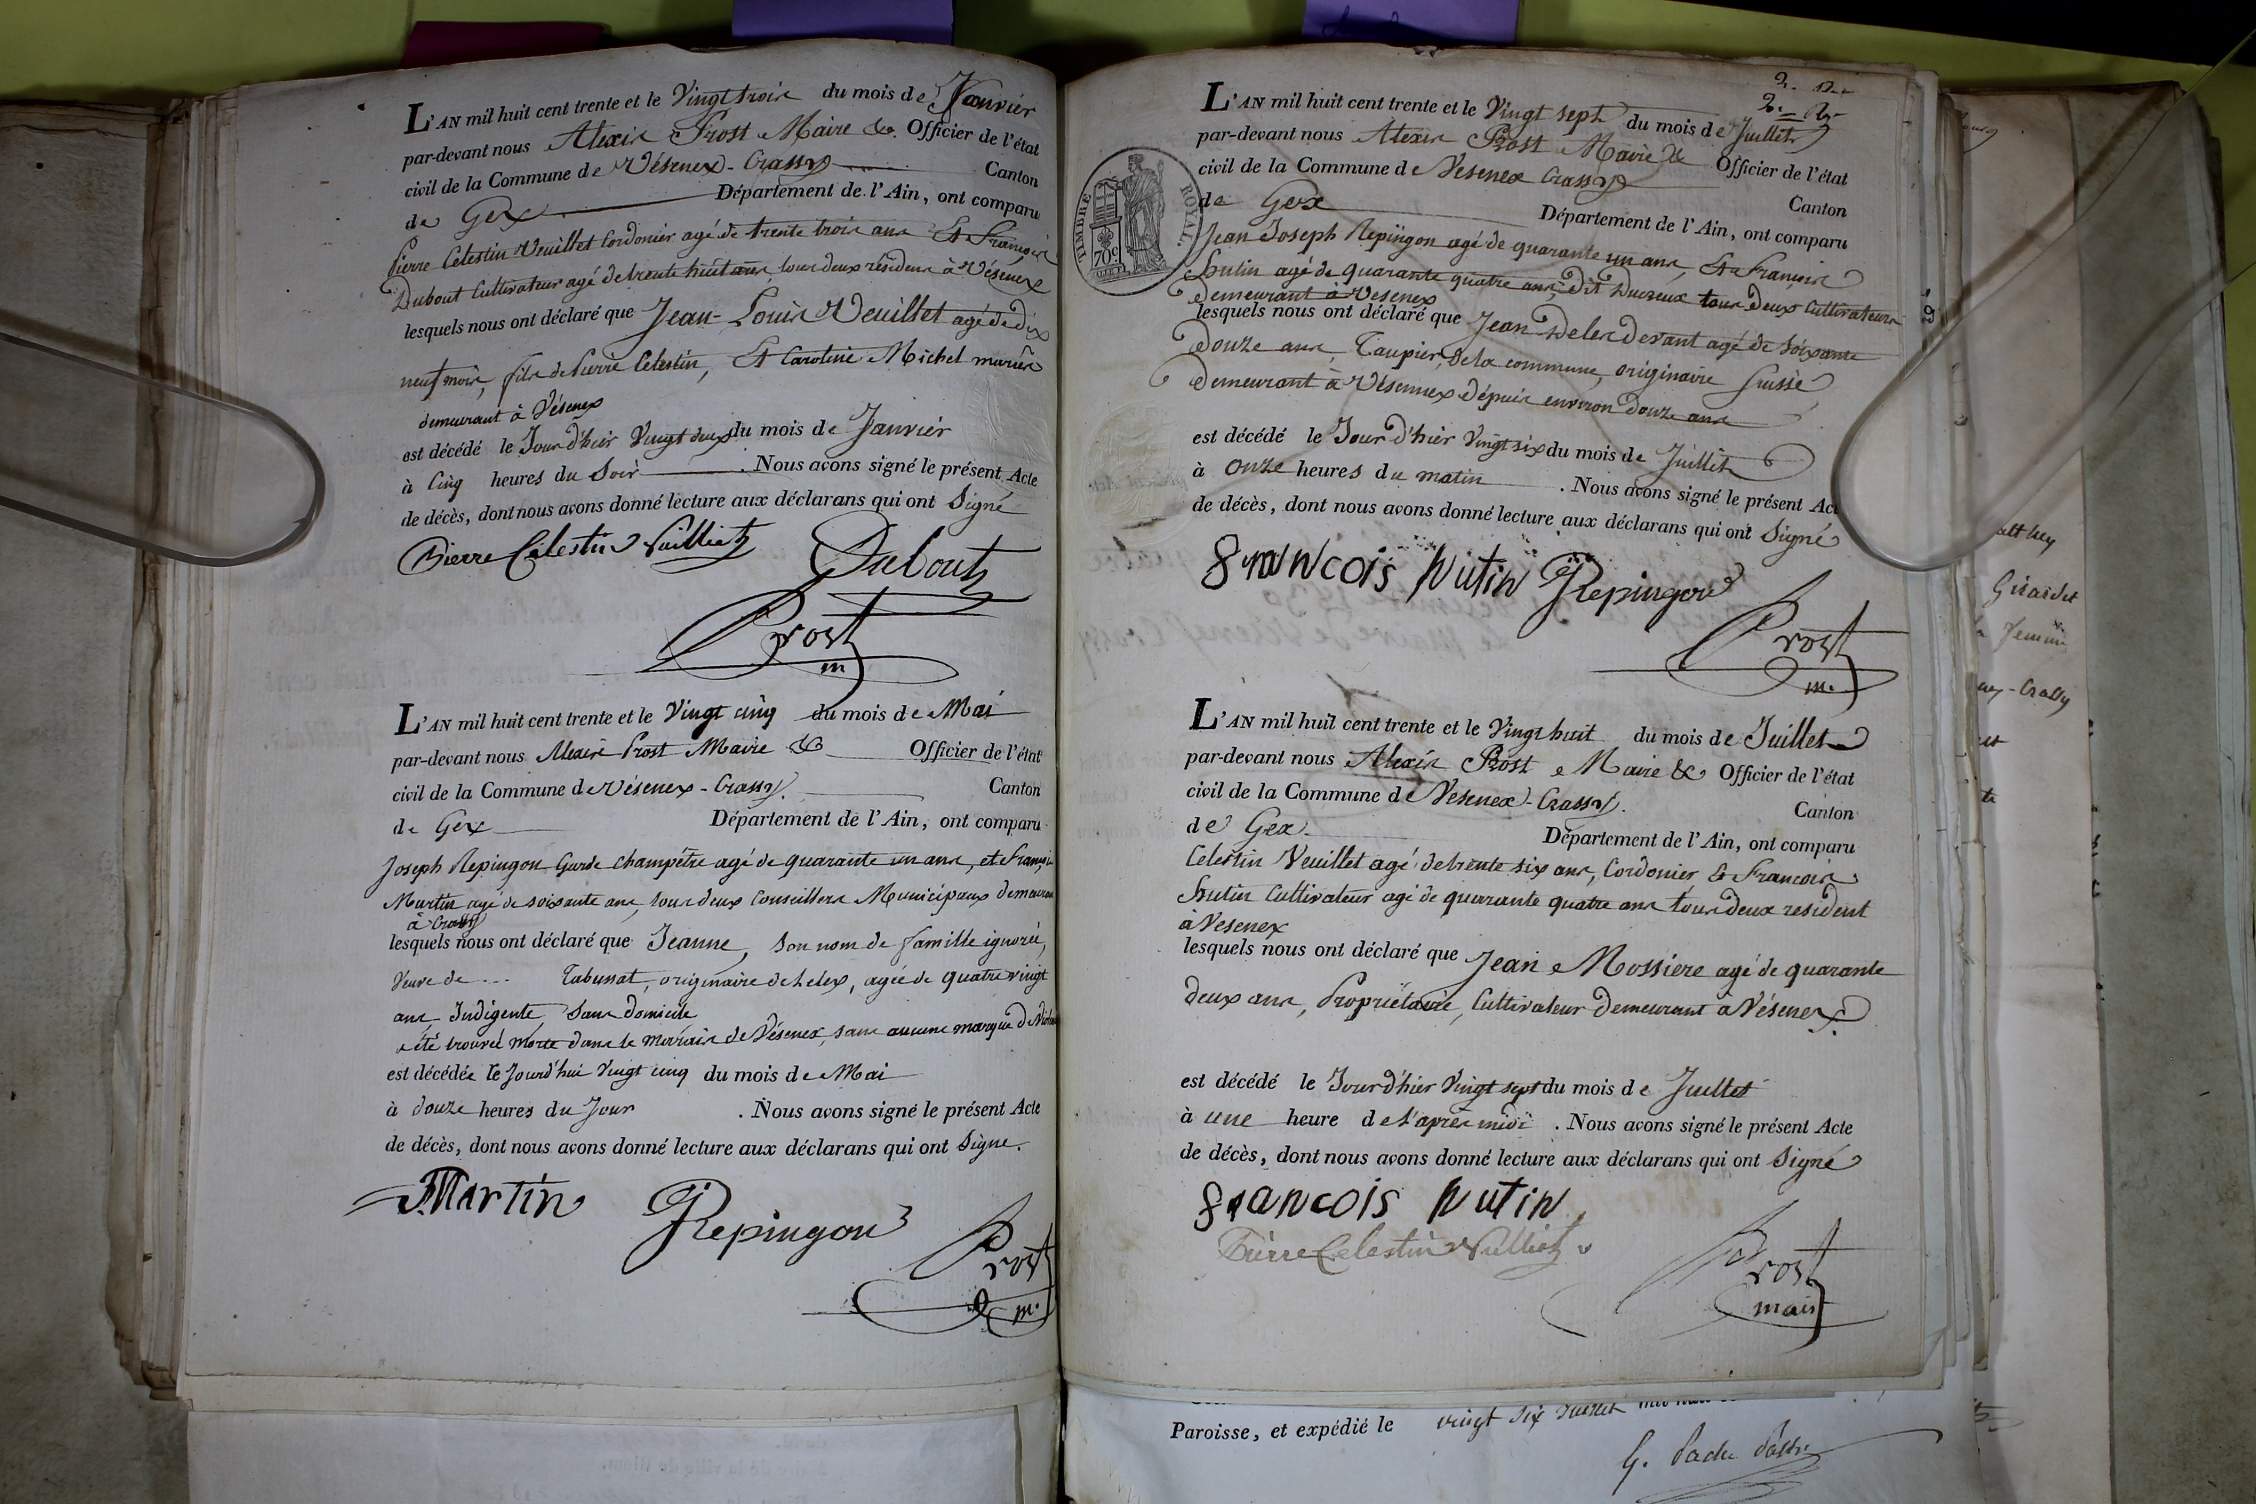 L'AN mil huit cent trente et le Vingt trois du mois de Janvier
par-devant nous Alexis Prost Maire &c. Officier de l'état
civil de la Commune de Vésenex-Crassy Canton
de Gex Département de l'Ain, ont comparu
Pierre Celestin Veuillet Cordonier agé de trente trois ans Et François
Dubout Cultivateur agé de trente huit ans, tous deux résidens à Vésenex
lesquels nous ont déclaré que Jean-Louis Veuillet agé de dix
neuf mois, fils de Pierre Celestin, Et Caroline Michel mariés
demeurant à Vésenex
est décédé le Jour d'hier Vingt deux du mois de Janvier
à Cinq heures du Soir. Nous avons signé le présent Acte
de décès, dont nous avons donné lecture aux déclarans qui ont Signé
Pierre Celestin Vuilliet Dubout
Prost
m
L'AN mil huit cent trente et le Vingt cinq du mois de Mai
par-devant nous Alexis Prost Maire &c Officier de l'état
civil de la Commune de Vésenex-Crassy. Canton
de Gex Département de l'Ain, ont comparu
Joseph Repingon Garde champêtre agé de quarante un ans, et François
Martin agé de soixante ans, tous deux Conseillers Municipaux demeurans
à Crassy
lesquels nous ont déclaré que Jeanne, son nom de famille ignoré,
Veuve de ... Tabussat, originaire de Lelex, agée de quatre vingt
ans, Indigente Sans domicile
a été trouvée morte dans le marais de Vésenex, sans aucune marque de
est décédée le Jourd'hui Vingt cinq du mois de Mai
à douze heures du Jour. Nous avons signé le présent Acte
de décès, dont nous avons donné lecture aux déclarans qui ont Signe.
Martin Repingon
Prost
m.
2.
2.
L'AN mil huit cent trente et le Vingt sept du mois de Juillet
par-devant nous Alexis Prost Maire &c Officier de l'état
civil de la Commune de Vesenex Crassy Canton
de Gex Département de l'Ain, ont comparu
TIMBRE ROYAL.
70c
Jean Joseph Repingon agé de quarante un ans, Et François
Hutin agé de quarante quatre ans, dit Ducreux tous deux Cultivateurs
demeurant à Vesenex
lesquels nous ont déclaré que Jean Delerdevant agé de Soixante
douze ans, Taupier de la commune, originaire Suisse
demeurant à Vésennex dépuis environ douze ans
est décédé le Jour d'hier Vingt six du mois de Juillet
à Onze heures du matin. Nous avons signé le présent Acte
de décès, dont nous avons donné lecture aux déclarans qui ont Signé
François Hutin Repingon
Prost
m.
L'AN mil huit cent trente et le Vingt huit du mois de Juillet
par-devant nous Alexis Prost Maire &c Officier de l'état
civil de la Commune de Vesenex-Crassy. Canton
de Gex. Département de l'Ain, ont comparu
Celestin Veuillet agé de trente six ans, Cordonier Et François
Hutin Cultivateur agé de quarante quatre ans tous deux resident
à Vesenex
lesquels nous ont déclaré que Jean Mossiere agé de quarante
deux ans, Propriétaire, Cultivateur demeurant à Vésenex.
est décédé le Jour d'hier Vingt sept du mois de Juillet
à une heure de l'après midi. Nous avons signé le présent Acte
de décès, dont nous avons donné lecture aux déclarans qui ont Signé
François Hutin
Pierre Celestin Vulliet
Prost
maire
Girardet
Paroisse, et expédié le vingt six